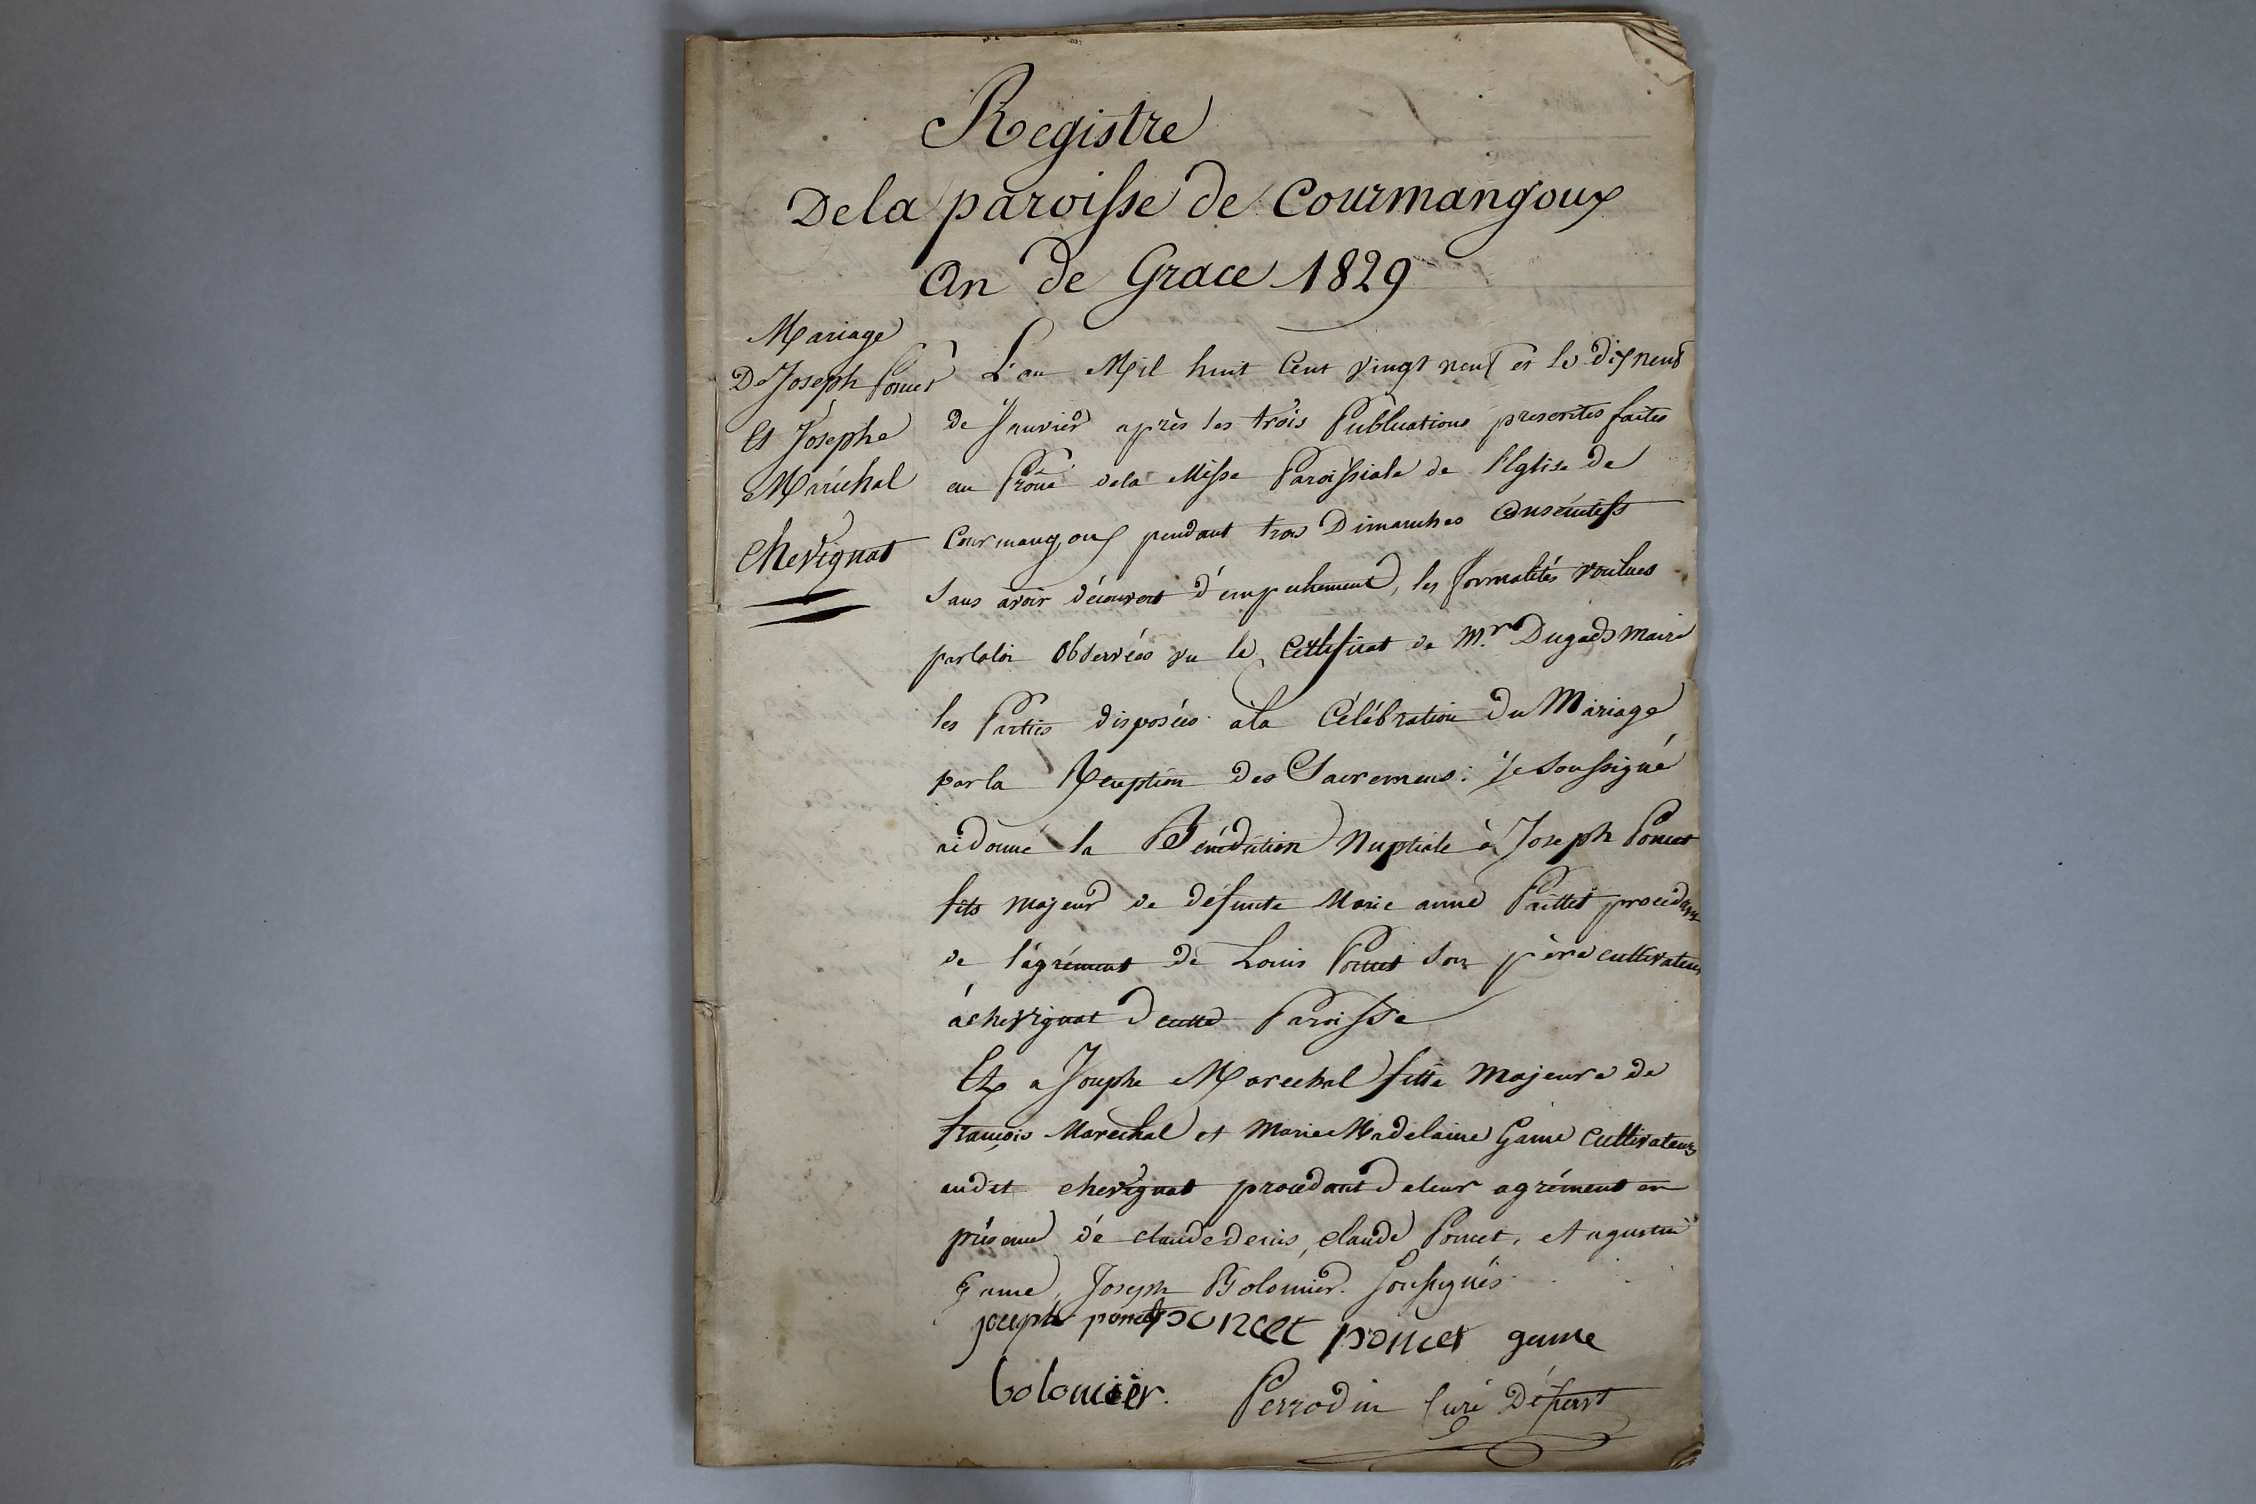 Registre
De la paroisse de Courmangoux
An de Grace 1829
Mariage
De Joseph Poncet
Et Josephe
Maréchal
Chevignat
L'an Mil huit Cent vingt neuf et le dix neuf
de Janvier après les trois Publications prescrites faites
au Prône dela Messe Paroissiale de l'Eglise de
Courmangoux pendant trois Dimanches Consécutifs
sans avoir découvert d'empechement, les formalités voulues
par la loi Observées vu le Certificat de Mr. Dugads maire
les Parties disposées à la Célébration Du Mariage
par la Reception Des Sacremens: Je soussigné
ai donné la Bénédiction Nuptiale à Joseph Poncet
fils majeur de défunte Marie anne Paillet procédant
de l'agrément de Louis Poncet son père cultivateur
à chevignat De cette Paroisse
Et a Josephe Marechal fille Majeure de
françois Marechal et Marie Madelaine Game Cultivateurs
audit chevignat procédant De leur agrément en
présence dé claude denis, claude Poncet, et agustin
Game, Joseph Bolomier. Soussignés
joceph poncet poncet poncet game
bolomier. Perrodin Curé Déservt